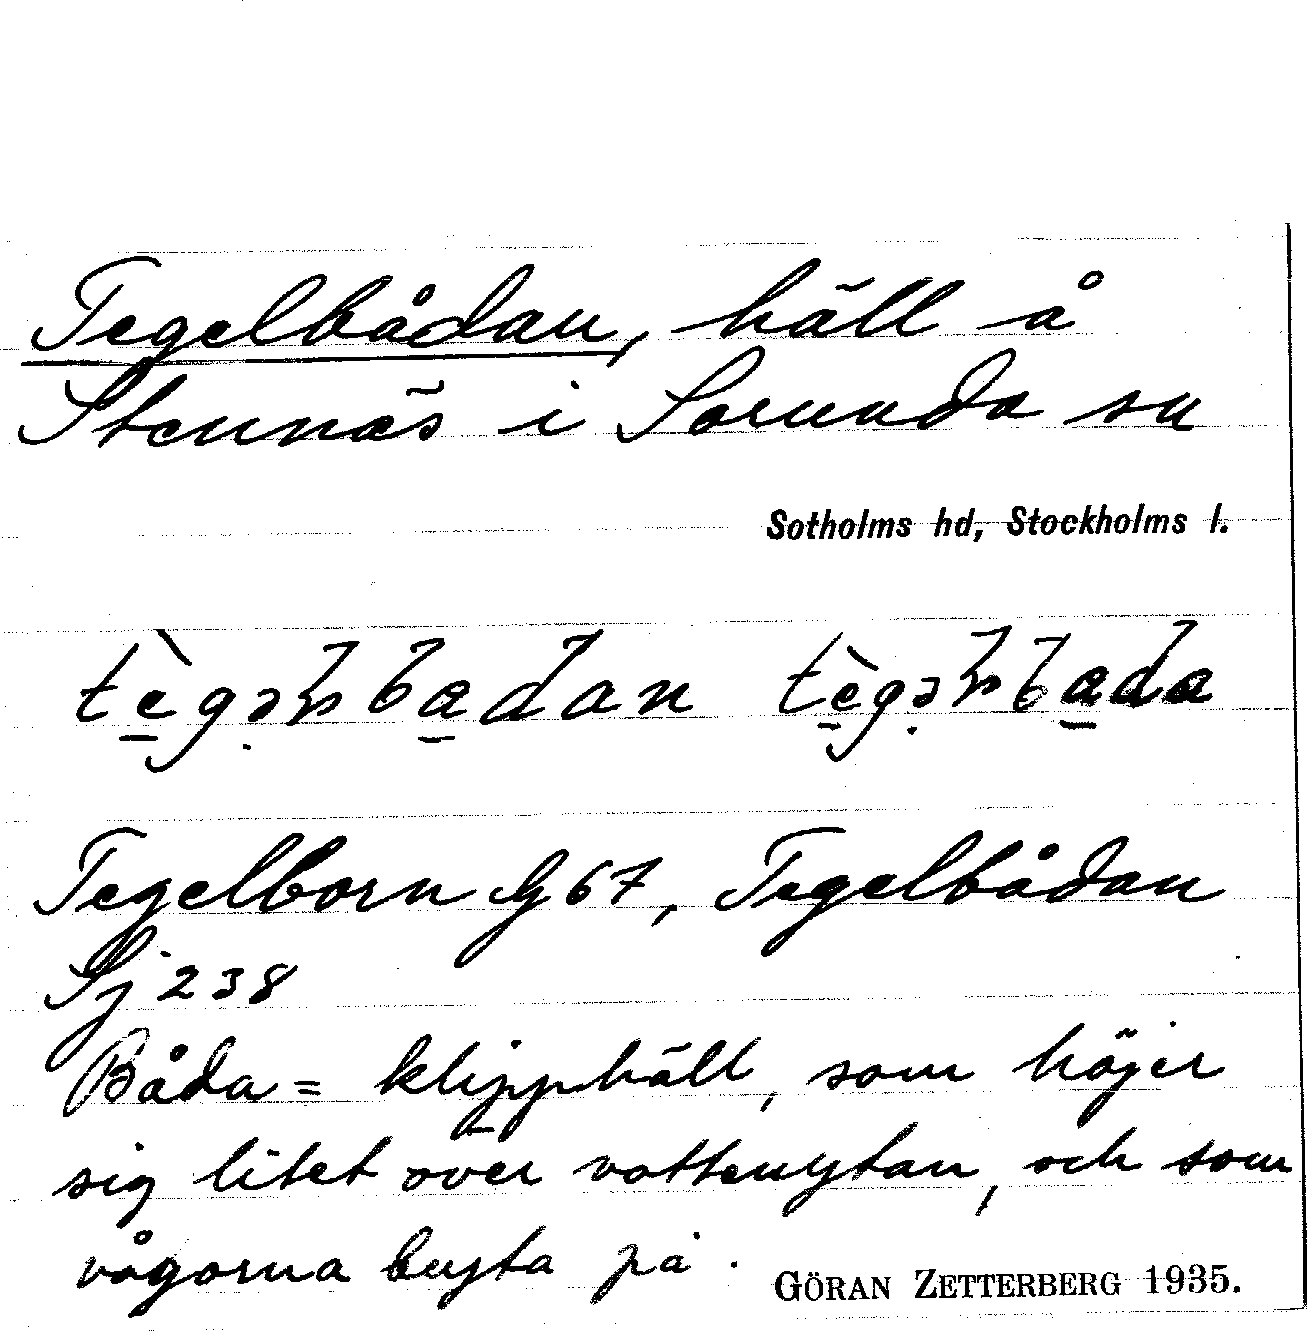 Tegelbådan, häll å
Stennäs i Sorunda sn
Sotholms hd, Stockholms l.
Tegelborn G 67, Tegelbådan
Sj 238
Båda = klipphäll, som höjer
sig litet över vattenytan, och som
vågorna bryta på.
GÖRAN ZETTERBERG 1935.